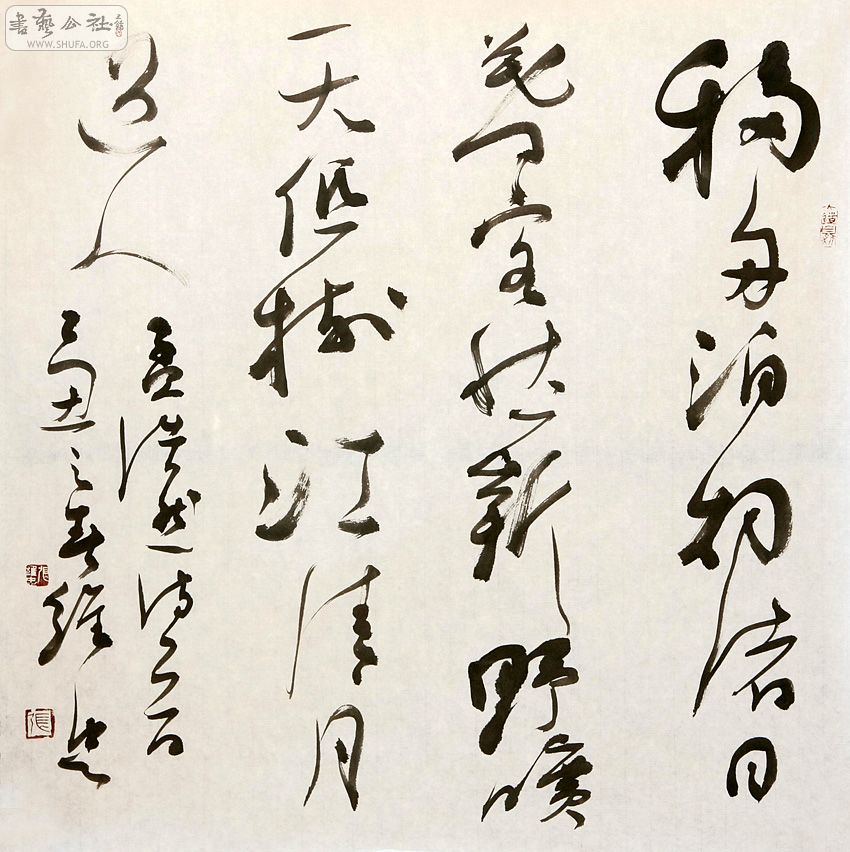 書藝公社
WWW.SHUFA.ORG
移舟泊烟渚日
暮客愁新野曠
天低樹江清月
近人
孟浩然詩一首
己丑之春維忠
張